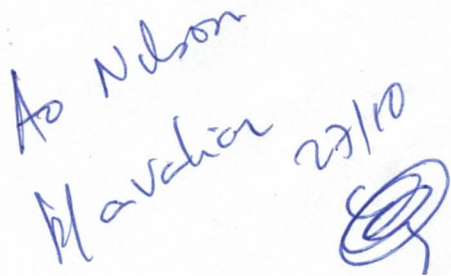 Ao Nelson
p/ avaliar 27/10